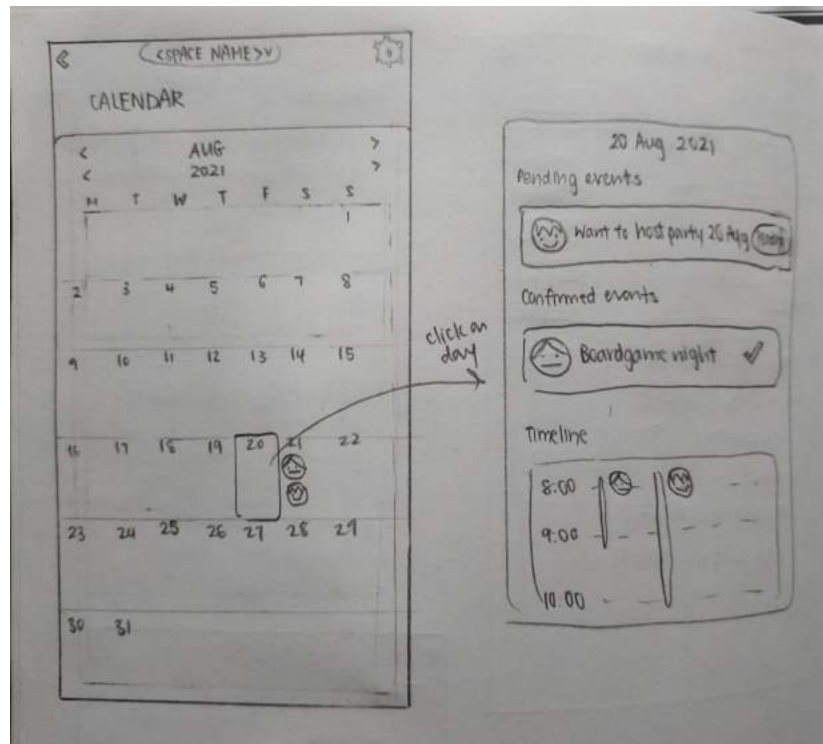 < <SPACE NAME> v
CALENDAR
< AUG >
< 2021 >
M T W T F S S
1
2 3 4 5 6 7 8
9 10 11 12 13 14 15
16 17 18 19 20 21 22
23 24 25 26 27 28 29
30 31
click on
day
20 Aug 2021
Pending events
Want to host party 20 Aug
Confirmed events
Boardgame night ✓
Timeline
8:00
9:00
10:00